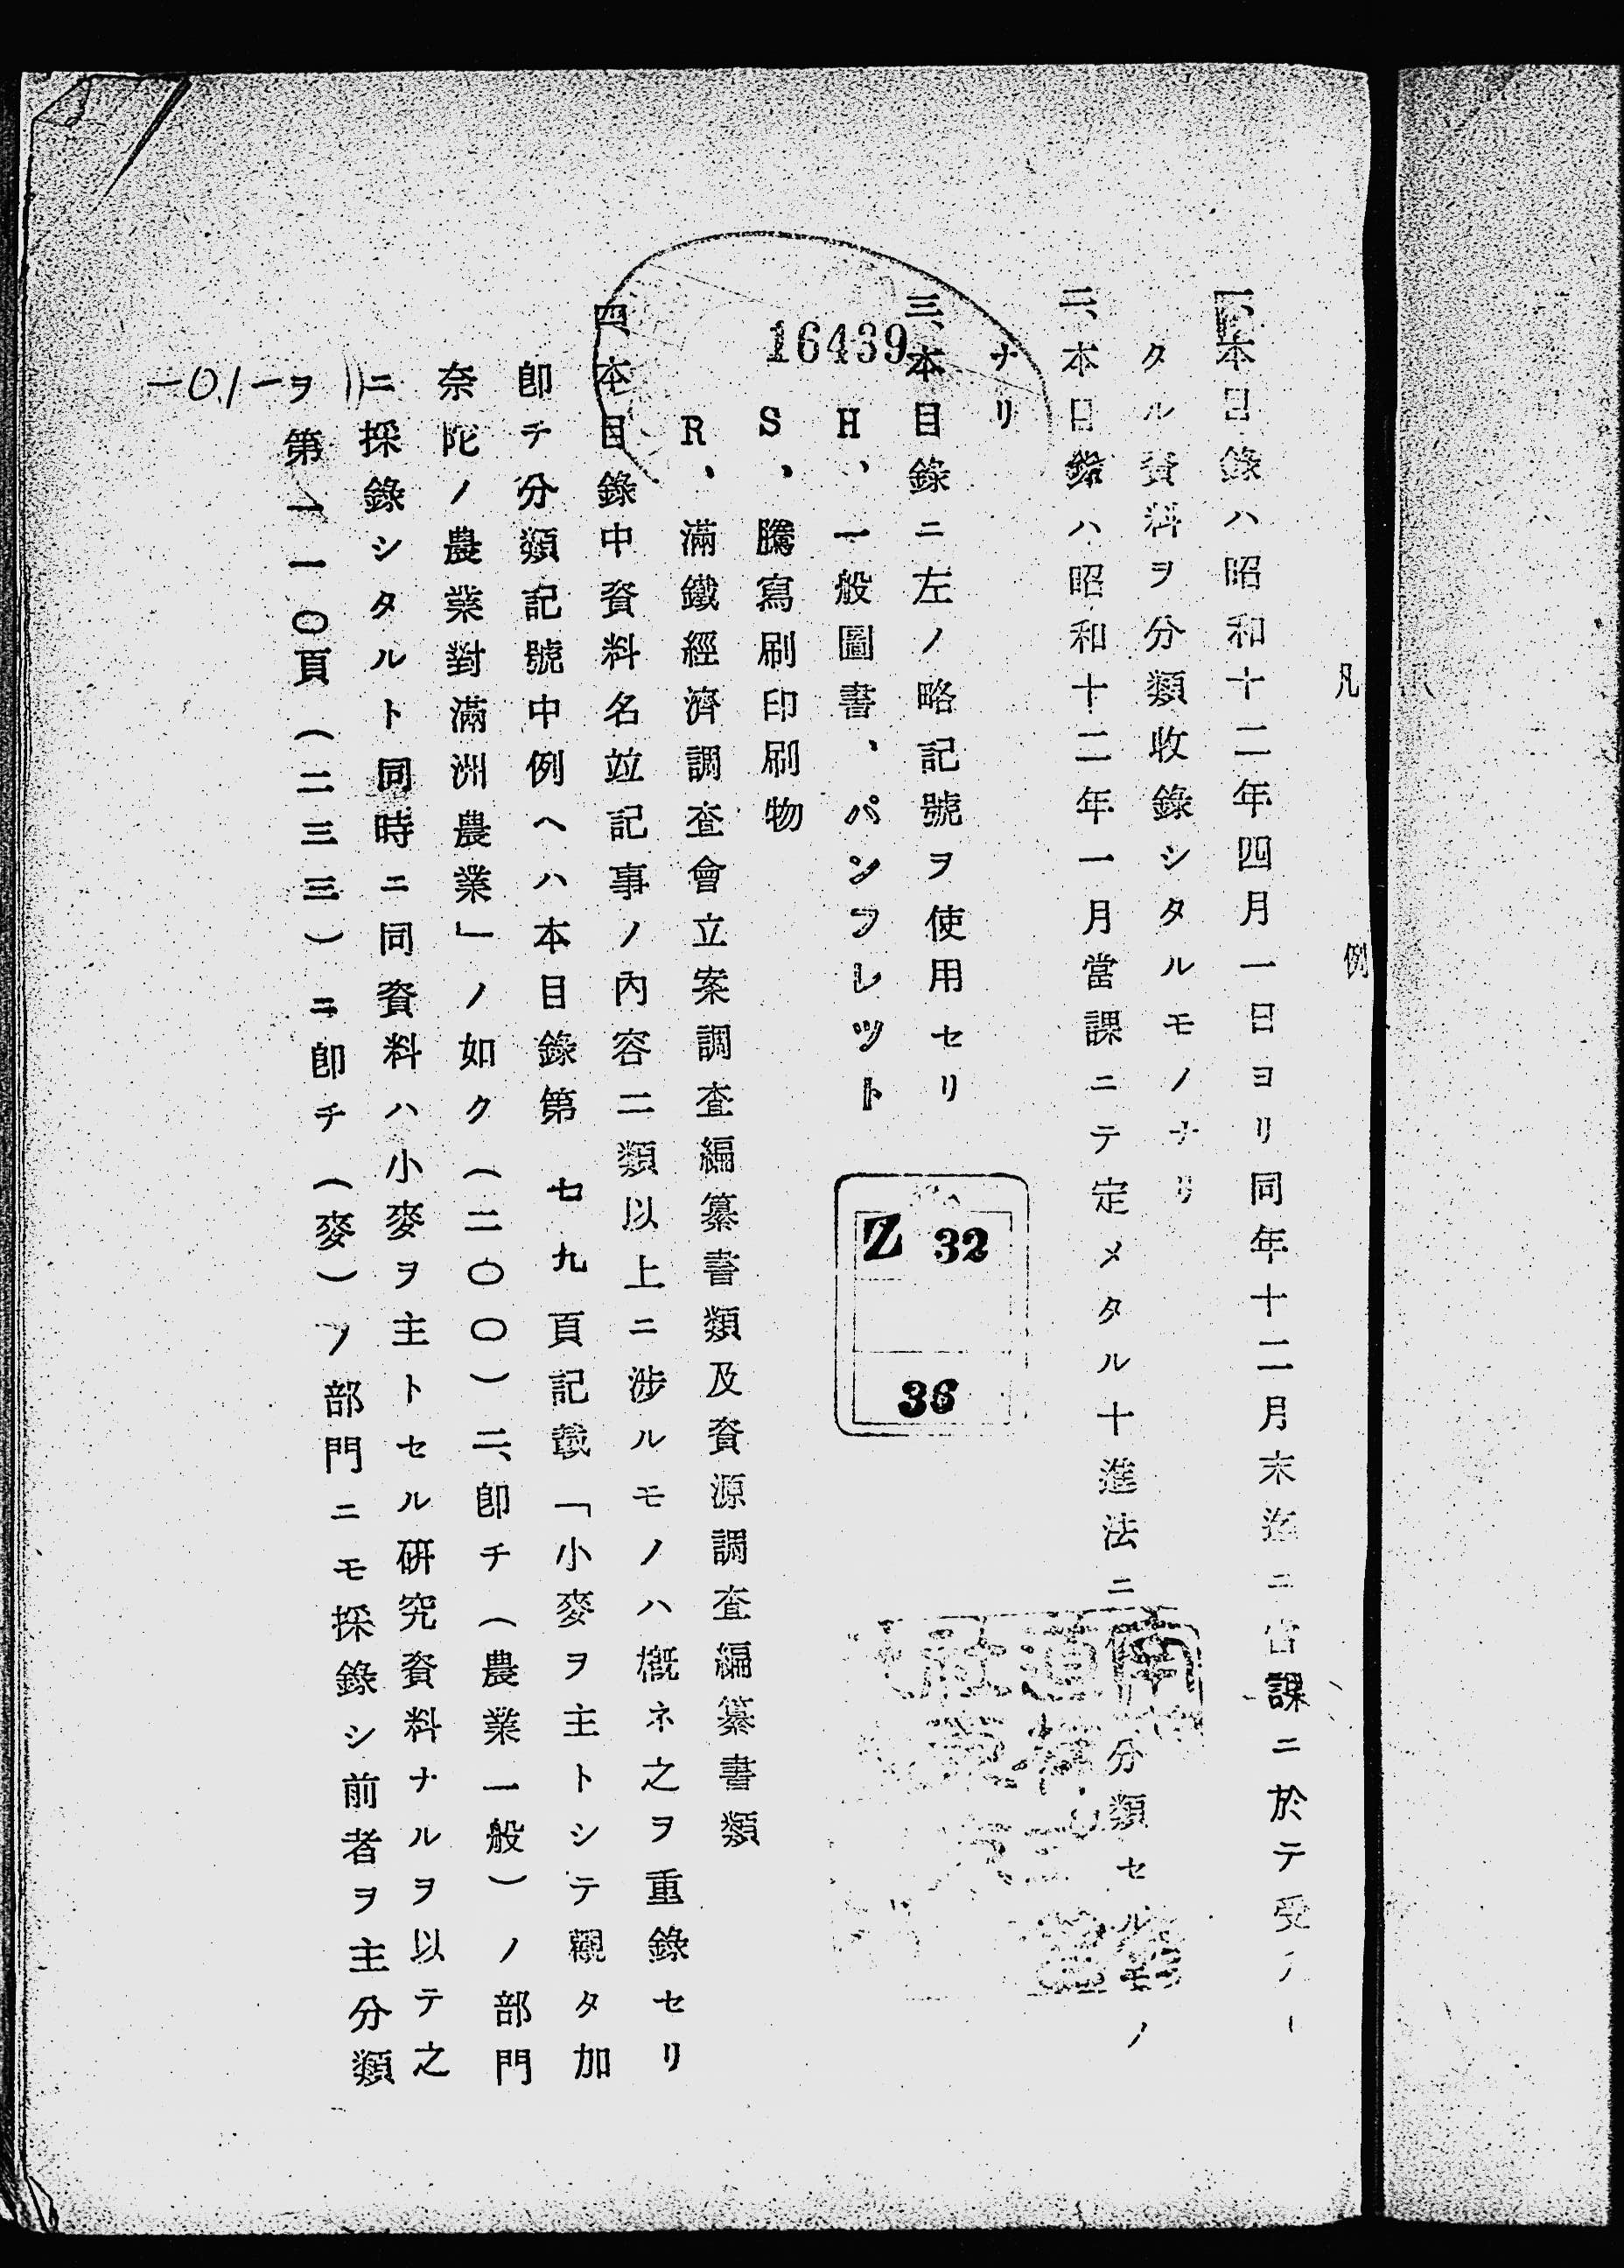 凡例
一、本目錄ハ昭和十二年四月一日ヨリ同年十二月末迄ニ當課ニ於テ受
タル資料ヲ分類收錄シタルモノナリ
二、本目錄ハ昭和十二年一月當課ニテ定メタル十進法ニ分類セルモノ
ナリ
三、本目錄ニ左ノ略記號ヲ使用セリ
H、一般圖書、パンフレツト
S、騰寫刷印刷物
R、滿鐵經濟調査會立案調査編纂書類及資源調査編纂書類
四、本目錄中資料名竝記事ノ內容二類以上ニ涉ルモノハ槪ネ之ヲ重錄セリ
卽チ分類記號中例ヘハ本目錄第七九頁記載「小麥ヲ主トシテ觀タ加
奈陀ノ農業對滿洲農業」ノ如ク(二〇〇)二、卽チ(農業一般)ノ部門
ニ採錄シタルト同時ニ同資料ハ小麥ヲ主トセル硏究資料ナルヲ以テ之
ヲ第一一〇頁(二三三)ニ卽チ(麥)ノ部門ニモ採錄シ前者ヲ主分類
16439
Z 32
36